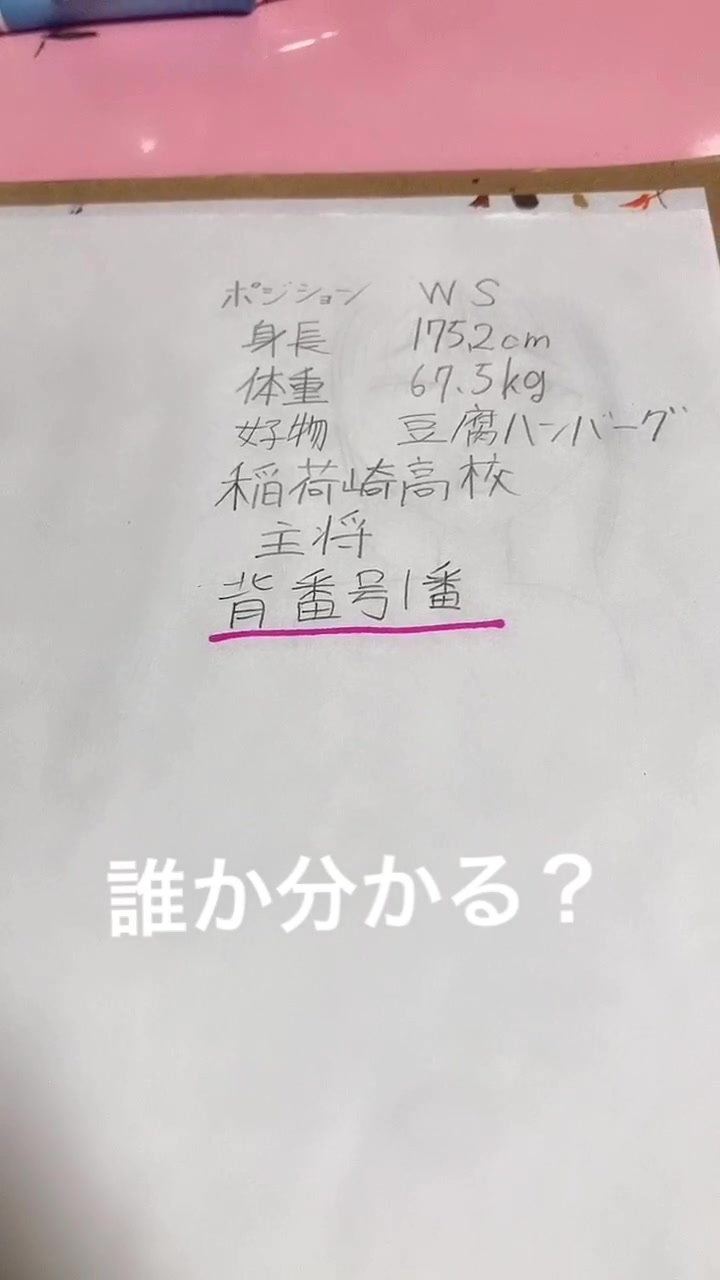 ポジション WS
身長 175.2cm
体重 67.5kg
好物 豆腐ハンバーグ
稲荷崎高校
主将
背番号1番
誰か分かる？